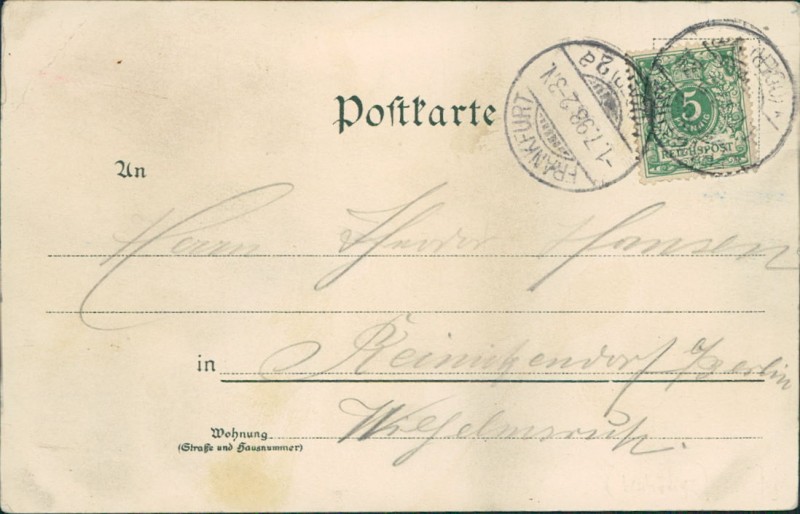 Postkarte
FRANKFURT
-1.7.98.2-3N.
(ODER) * 2a
5
PFENNIG
REICHSPOST
An
Herrn Theodor Hansen
in Reinickendorf /Berlin
Wohnung
(Straße und Hausnummer)
Wilhelmsruh.